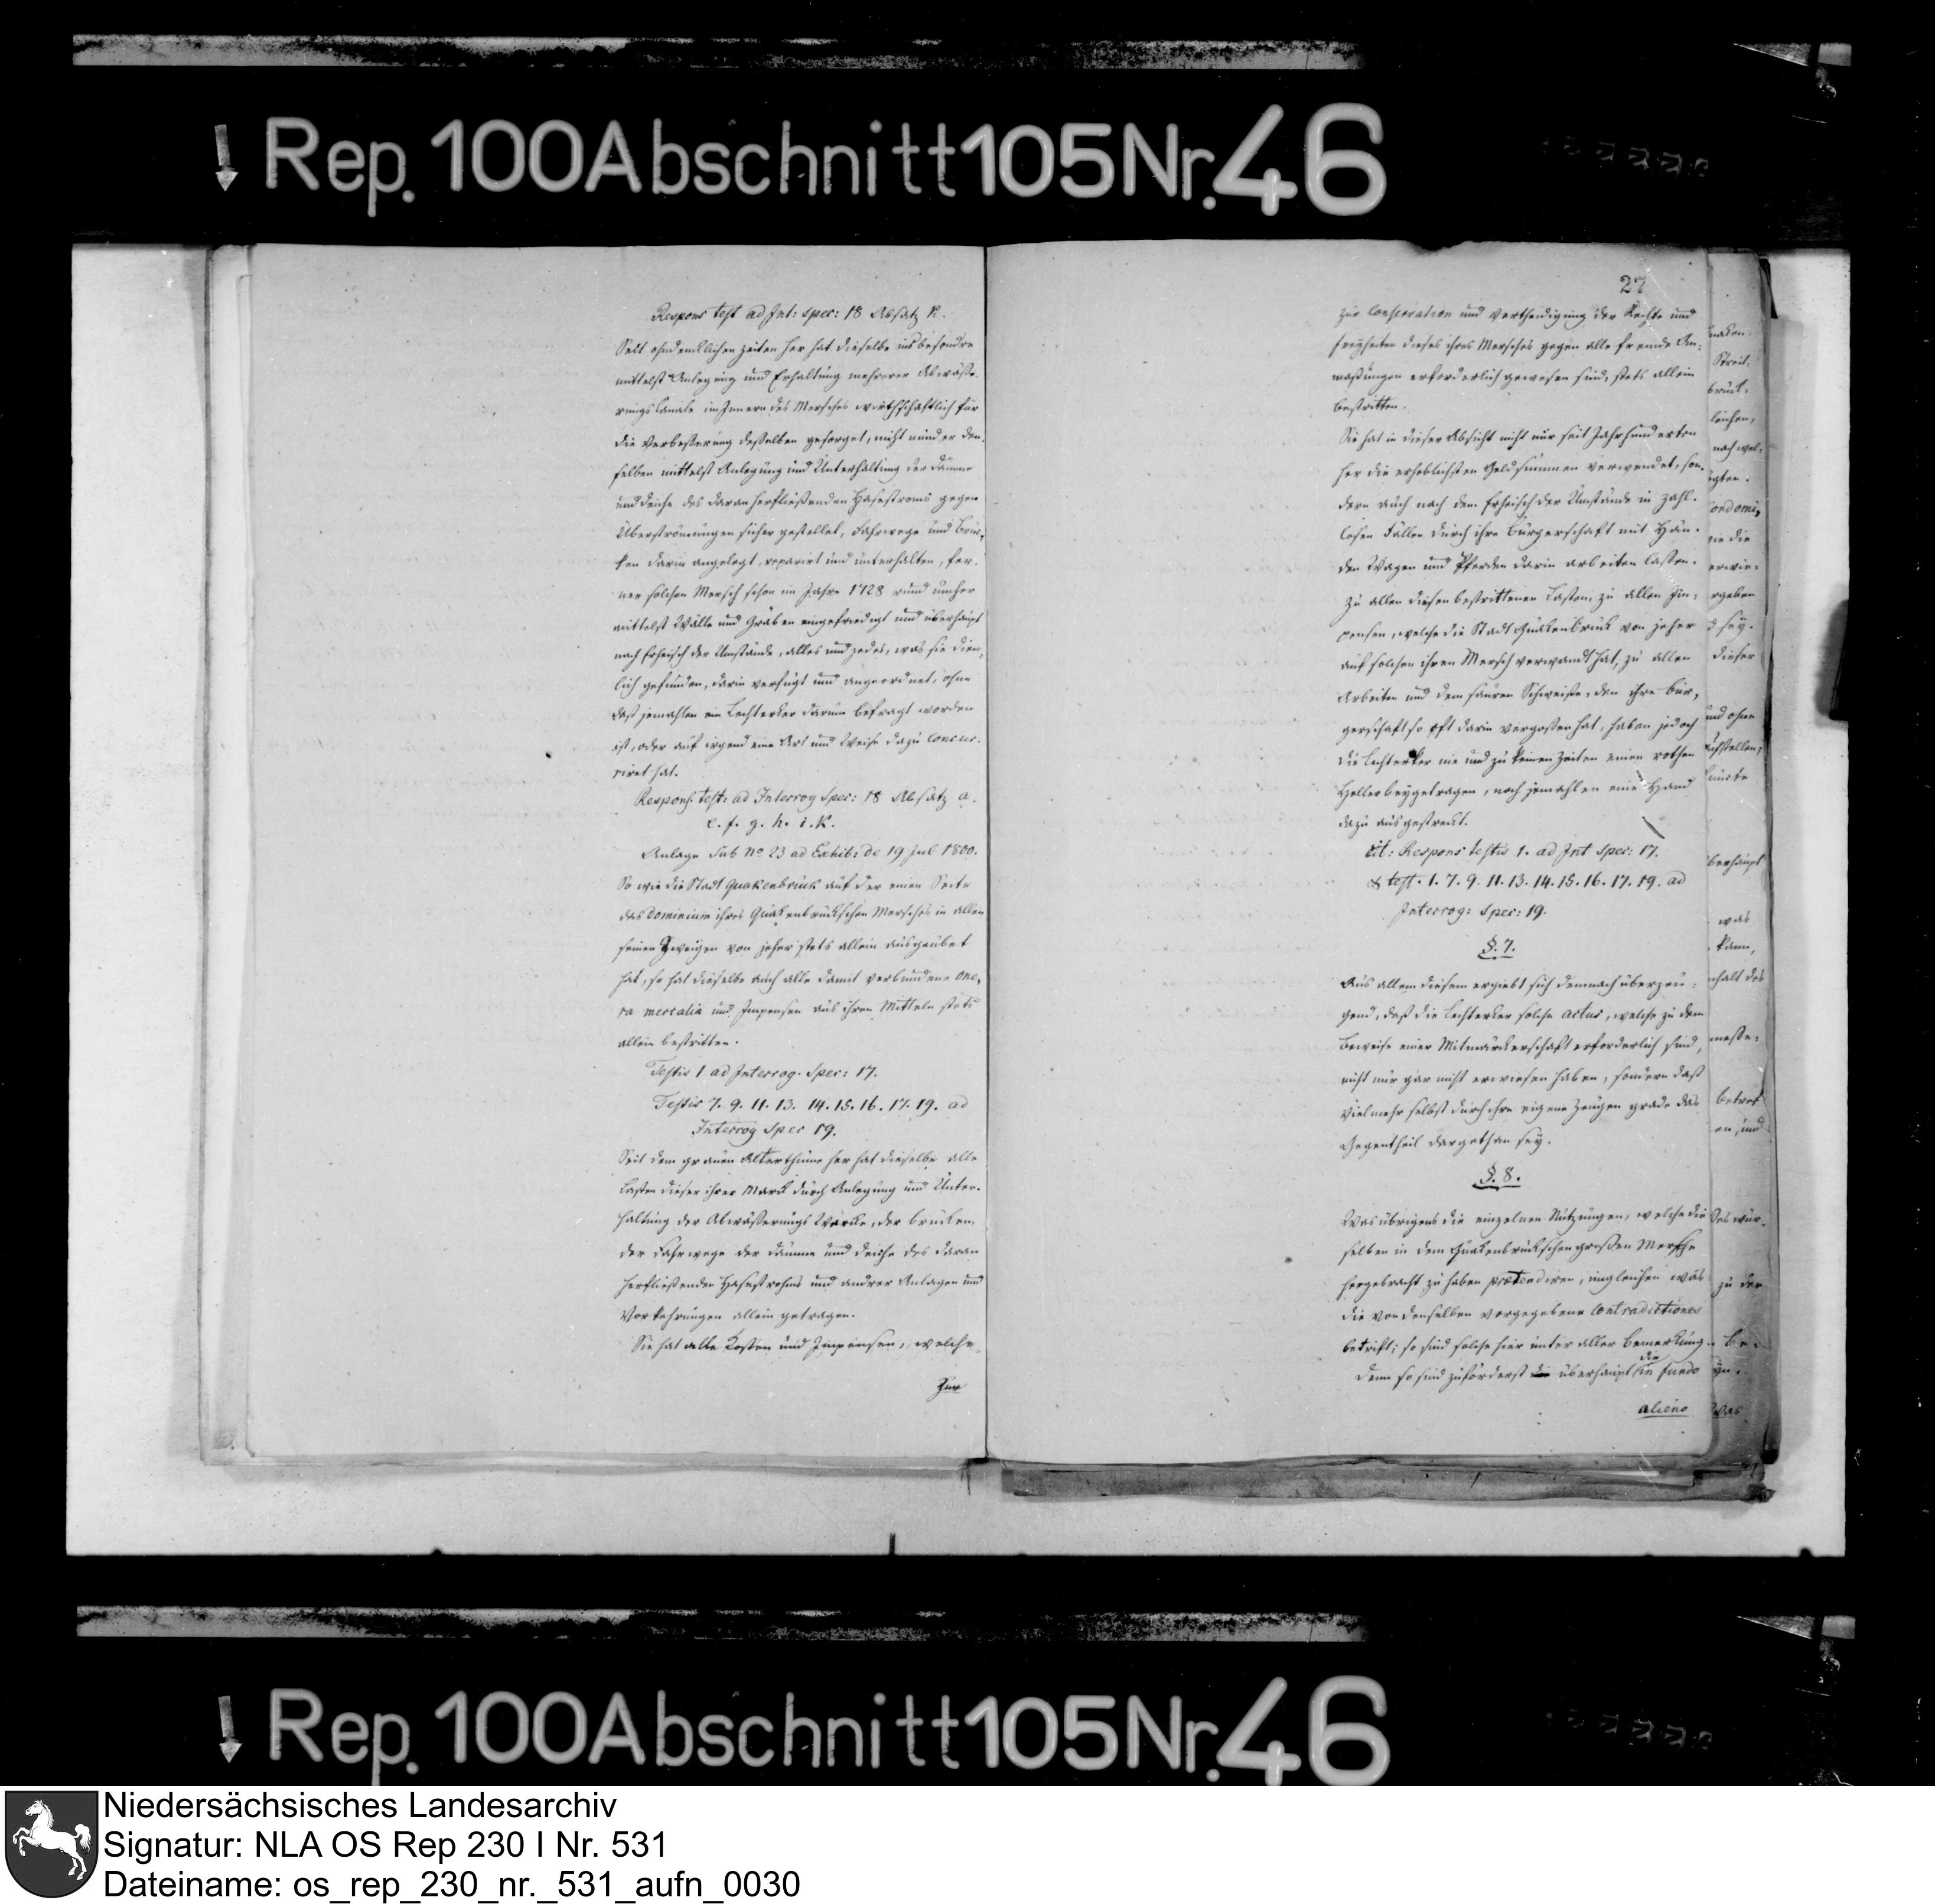 Rep. 100 Abschnitt 105 Nr. 46
Respons test ad Int: spec: 18 Absatz k.
Seit ohndencklichen Zeiten her hat dieselbe insbesondre
mittelst Anlegung und Erhaltung mehrerer Abwäße-
rungs Canale im Innern des Mersches wirthschaftlich für
die Verbeßerung deßelben gesorget, nicht minder den-
selben mittelst Anlegung und Unterhaltung der Dämme
und Deiche des daran herfließenden Hasestroms gegen
Überströmungen sicher gestellet, Fahrwege und Brüc-
ken darin angelegt, reparirt und unterhalten, fer-
ner solchen Mersch schon im Jahre 1728 rund umher
mittelst Wälle und Graben eingefriedigt und überhaupt
nach Erheisch der Umstände, alles und jedes, was sie dien-
lich gefunden, darin verfügt und angeordnet, ohne
daß jemahlen ein Lechterker darum befragt worden
ist, oder auf irgend eine Art und Weise dazu concur-
riret hat.
Respons. test: ad Interrog Spec: 18 Absatz a.
e. f. g. h. i. k.
Anlage sub No 23 ad Exhib: de 19 Jul 1800.
So wie die Stadt Quakenbrück auf der einen Seite
das Dominium ihres Quakenbrückschen Mersches in allen
seinen Zweigen von jeher stets allein ausgeübet
hat, so hat dieselbe auch alle damit verbundene one-
ra mercalia und Impensen aus ihren Mitteln stets
allein bestritten.
Testis 1 ad Interrog. Spec: 17.
Testis 7. 9. 11. 13. 14. 15. 16. 17. 19. ad
Interrog Spec 19.
Seit dem grauen Alterthume her hat dieselbe alle
Lasten dieser ihrer Marck durch Anlegung und Unter-
haltung der Abwäßerungs Wercke, der Brücken,
der Fahrwege der Dämme und Deiche des daran
herfließenden Hasestrohms und andrer Anlagen und
Vorkehrungen allein getragen.
Sie hat alle Kosten und Impensen, welche
zur
27
zur Conservation und Vertheidigung der Rechte und
Freyheiten dieses ihres Mersches gegen alle fremde An-
maßungen erforderlich gewesen sind, stets allein
bestritten.
Sie hat in dieser Absicht nicht nur seit Jahrhunderten
her die erheblichsten Geldsummen verwendet, son-
dern auch nach dem Erheisch der Umstände in zahl-
losen Fällen durch ihre Bürgerschaft mit Hän-
den Wagen und Pferden darin arbeiten lassen.
Zu allen diesen bestrittenen Lasten, zu allen Im-
pensen, welche die Stadt Quakenbrück von jeher
auf solchen ihren Mersch verwandt hat, zu allen
Arbeiten und dem sauren Schweiße, den ihre Bür-
gerschaft so oft darin vergoßen hat, haben jedoch
die Lechterker nie und zu keinen Zeiten einen rothen
Heller beygetragen, noch jemahlen eine Hand
dazu ausgestreckt.
cit: Respons testis 1. ad Int Spec: 17.
& test. 1. 7. 9. 11. 13. 14. 15. 16. 17. 19. ad
Interrog: Spec: 19.
§. 7.
Aus allem diesem ergiebt sich demnach überzeu-
gend, daß die Lechterker solche actus, welche zu dem
Beweise einer Mitmarckerschaft erforderlich sind,
nicht nur gar nicht erwiesen haben, sondern daß
vielmehr selbst durch ihre eigene Zeugen grade das
Gegentheil dargethan sey.
§. 8.
Was übrigens die einzelnen Nutzungen, welche die
selben in dem Quakenbrückschen großen Mersche
hergebracht zu haben praetendiren, imgleichen was
die von denselben vorgegebene Contradictiones
betrift; so sind solche hier unter aller Bemerkung.
Denn so sind zuförderst überhaupt die in fundo
alieno
Rep. 100 Abschnitt 105 Nr. 46
Niedersächsisches Landesarchiv
Signatur: NLA OS Rep 230 I Nr. 531
Dateiname: os_rep_230_nr._531_aufn_0030